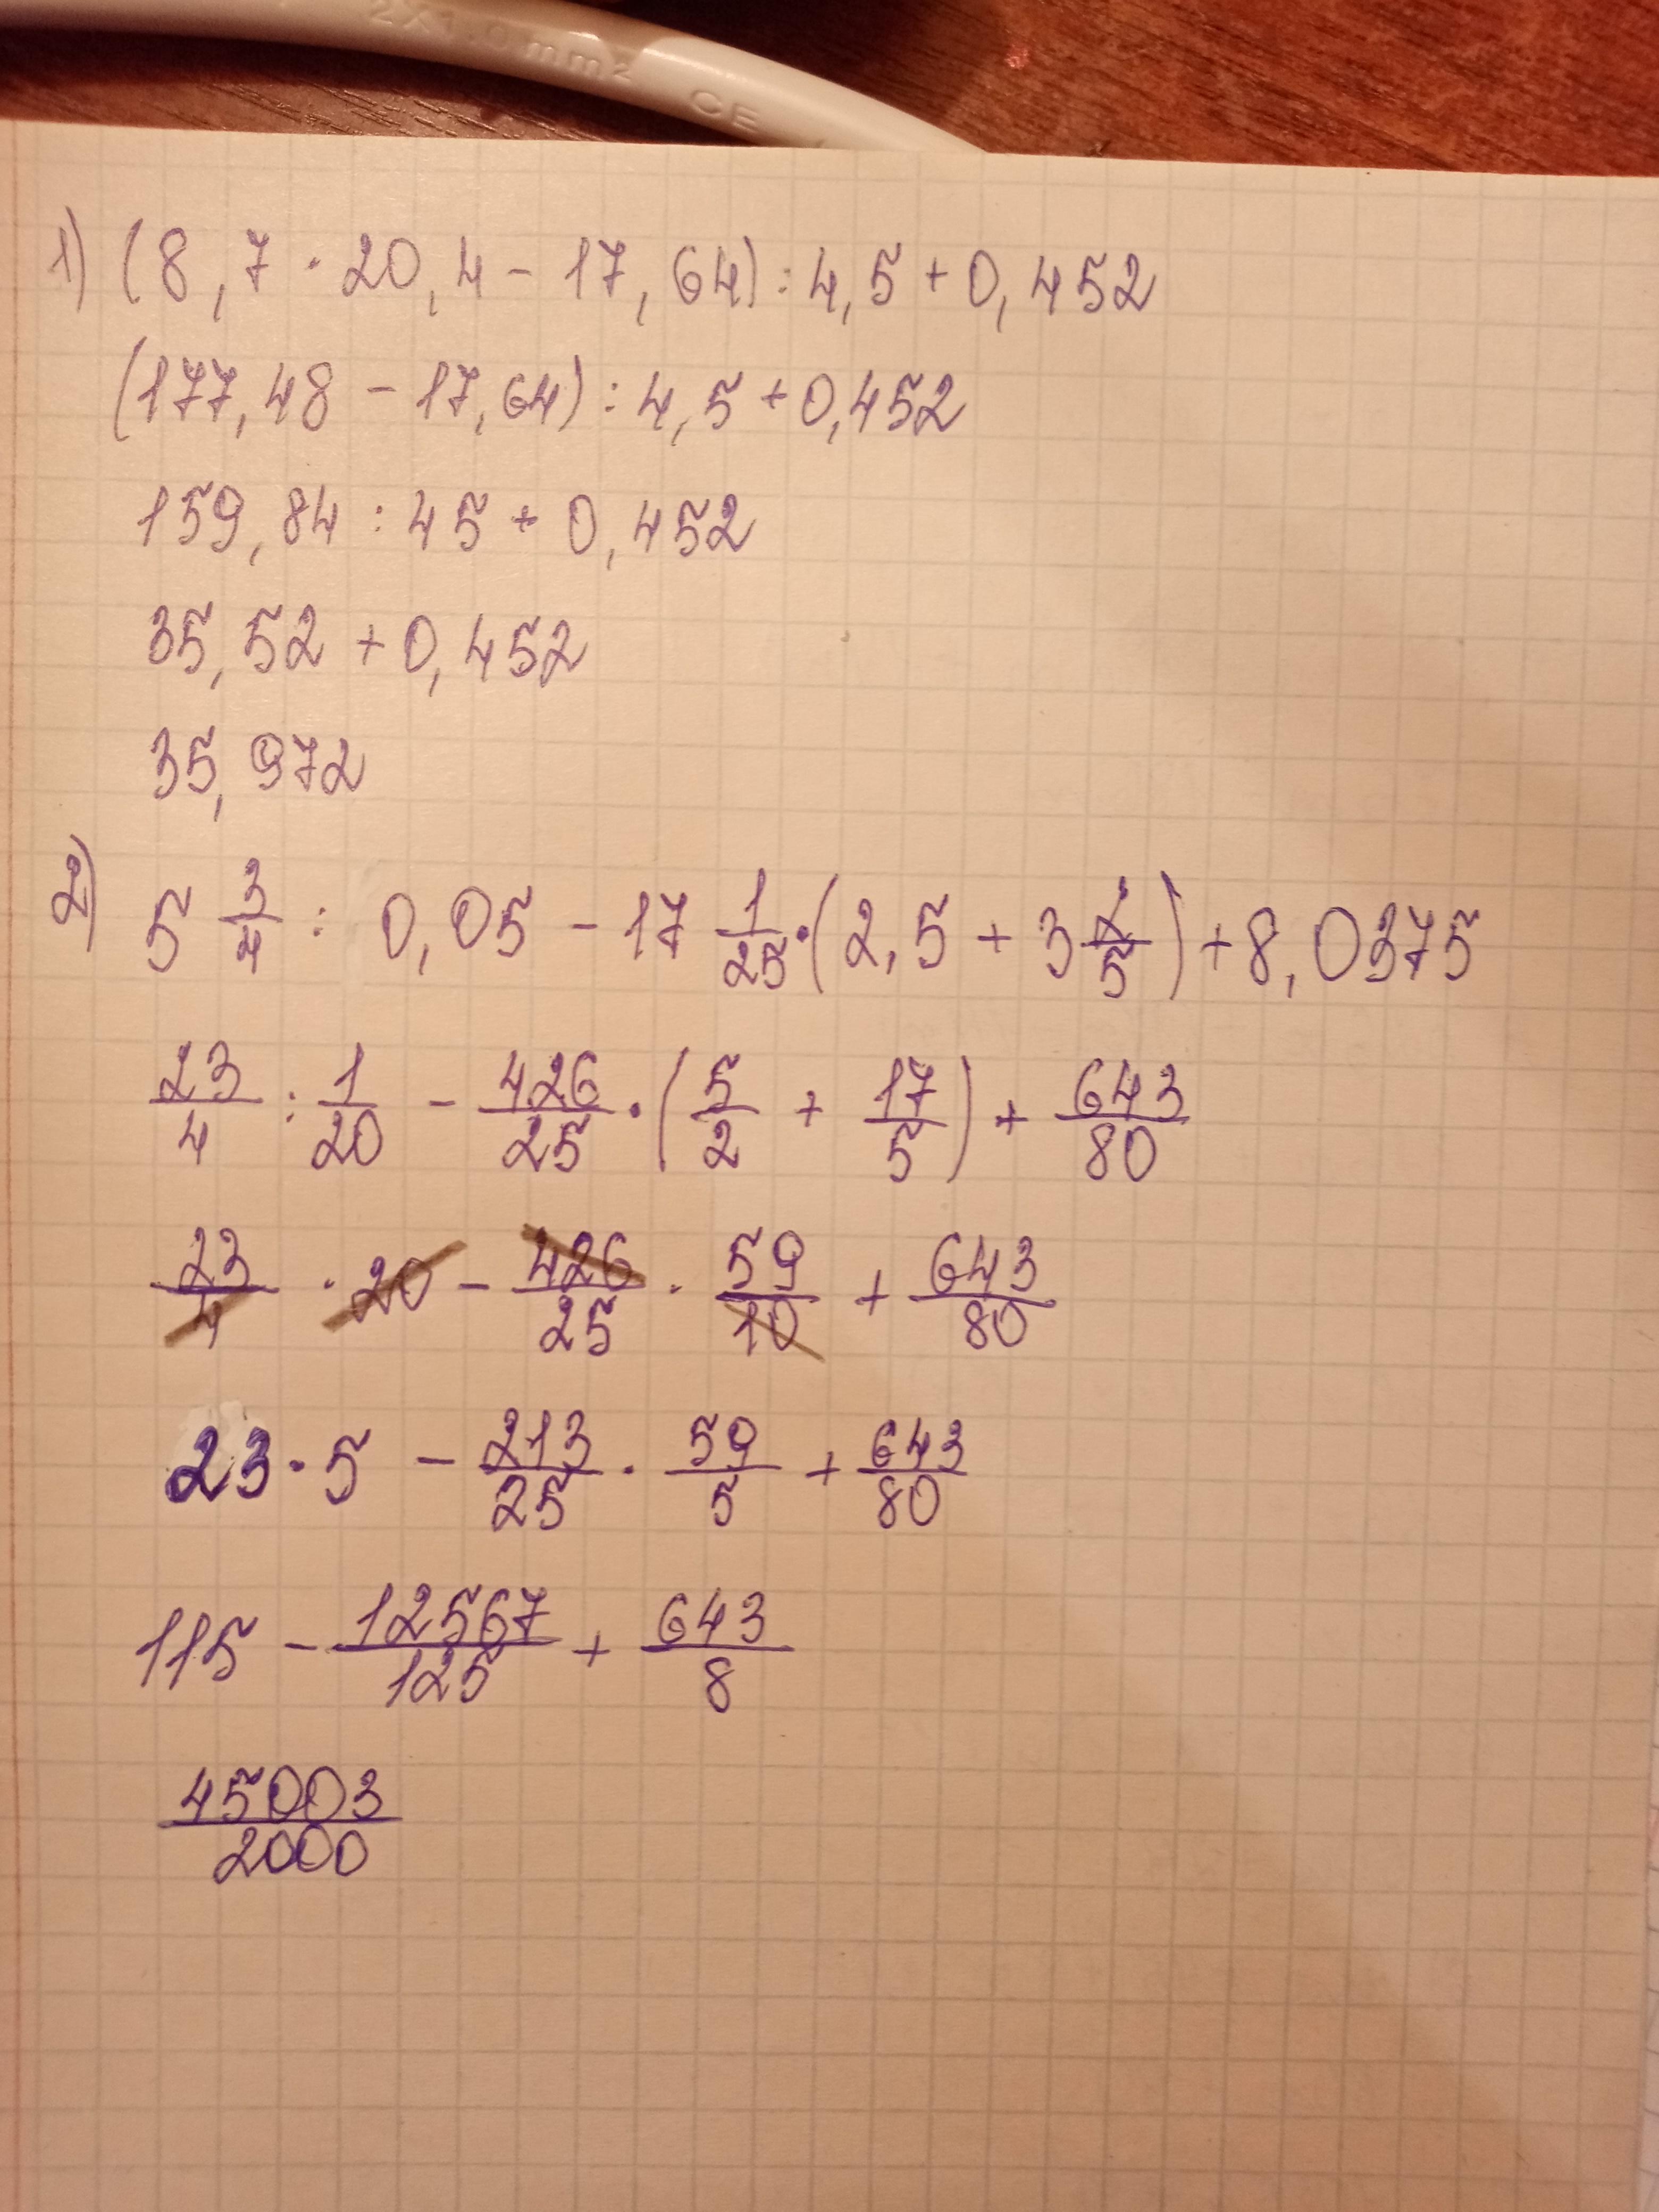 2X1.0mm2 CE
1) (8,7 · 20,4 - 17,64) : 4,5 + 0,452
(177,48 - 17,64) : 4,5 + 0,452
159,84 : 45 + 0,452
35,52 + 0,452
35,972
2) 5 3/4 : 0,05 - 17 1/25 · (2,5 + 3 2/5) + 8,0375
23/4 : 1/20 - 426/25 · (5/2 + 17/5) + 643/80
23/4 · 20 - 426/25 · 59/10 + 643/80
23 · 5 - 213/25 · 59/5 + 643/80
115 - 12567/125 + 643/8
45003/2000